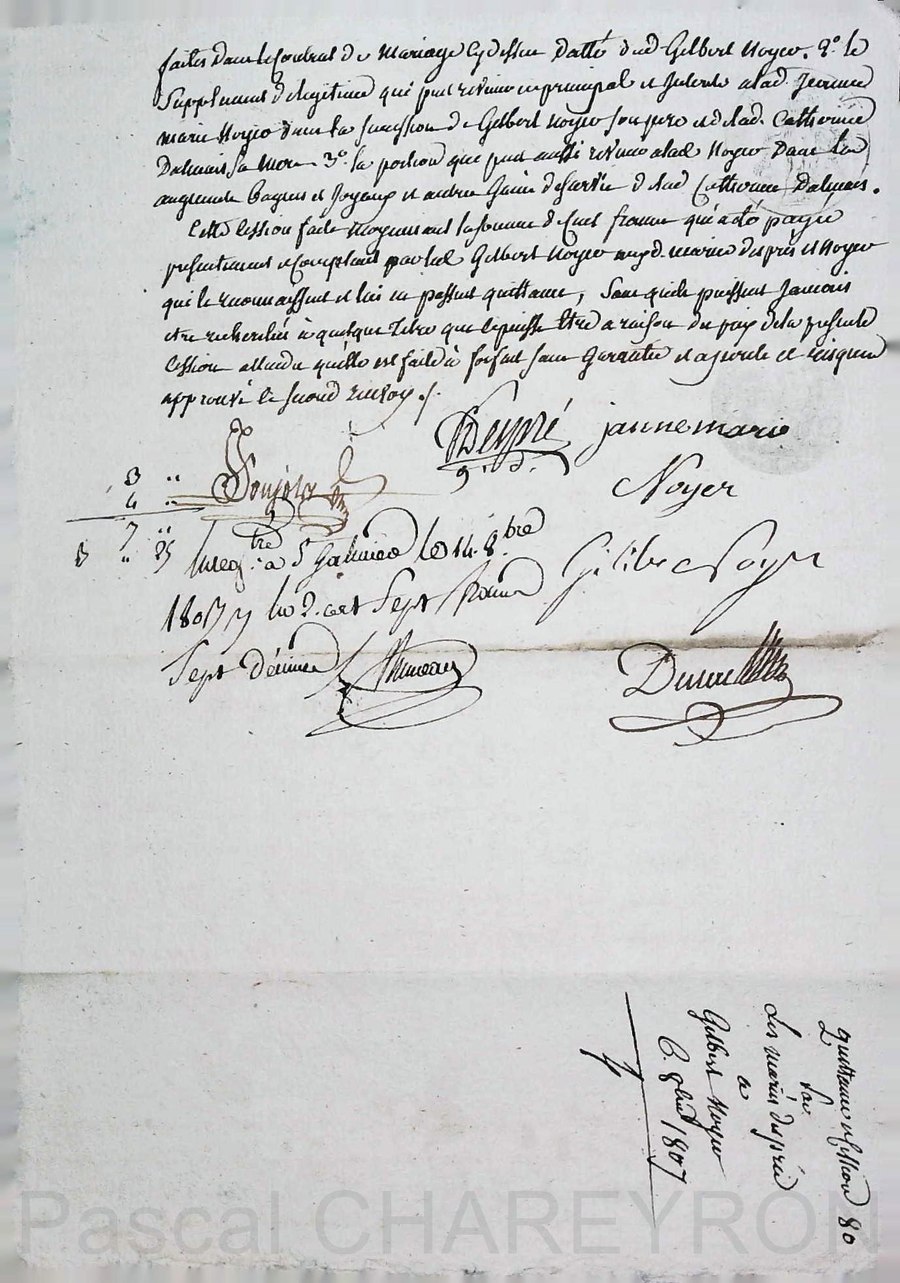 faites dans le Contrat de Mariage cydessus datté dud Gilbert Noyer. 2o. le
Supplement de legitime qui peut revenir en principal et Interets a lad. Jeanne
marie Noyer dans la succession de Gilbert Noyer son pere et de lad. Catherine
Dalmais sa mere 3o. la portion que peut aussi revenir a lad Noyer Dans les
augments bagues et Joyaux et autres Gains de survie de lad Catherine Dalmais.
Cette Cession faite moyennant la somme de Cent francs qui a été payée
presentement et Comptant par led Gilbert Noyer auxd. mariés després et Noyer
qui le reconnaissent et lui en passent quittance, Sans qu'ils puissent Jamais
etre recherchés à quelque titre que ce puisse être a raison du prix de la presente
Cession attendu qu'elle est faite à forfait sans Garantie et a perte et risques
approuvé le second renvoy ./.
Despré jannemarie
Noyer
3 "
4 "
7 "
3 " 25
Enreg.tré a St Galmier le 14. 8bre
1807 Sept francs
Gilibe Noyer
Sept décimes
quittance et Cession 80
par
Les mariés després
a
Gilbert Noyer
6. 8bre 1807
Pascal CHAREYRON